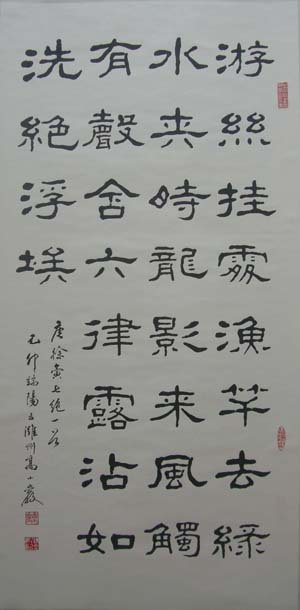 游絲挂處漁竿去綠
水夾時龍影来風觸
有聲含六律露沾如
洗絕浮埃
唐徐寅七絕一首
己卯端陽于濰州高小巖